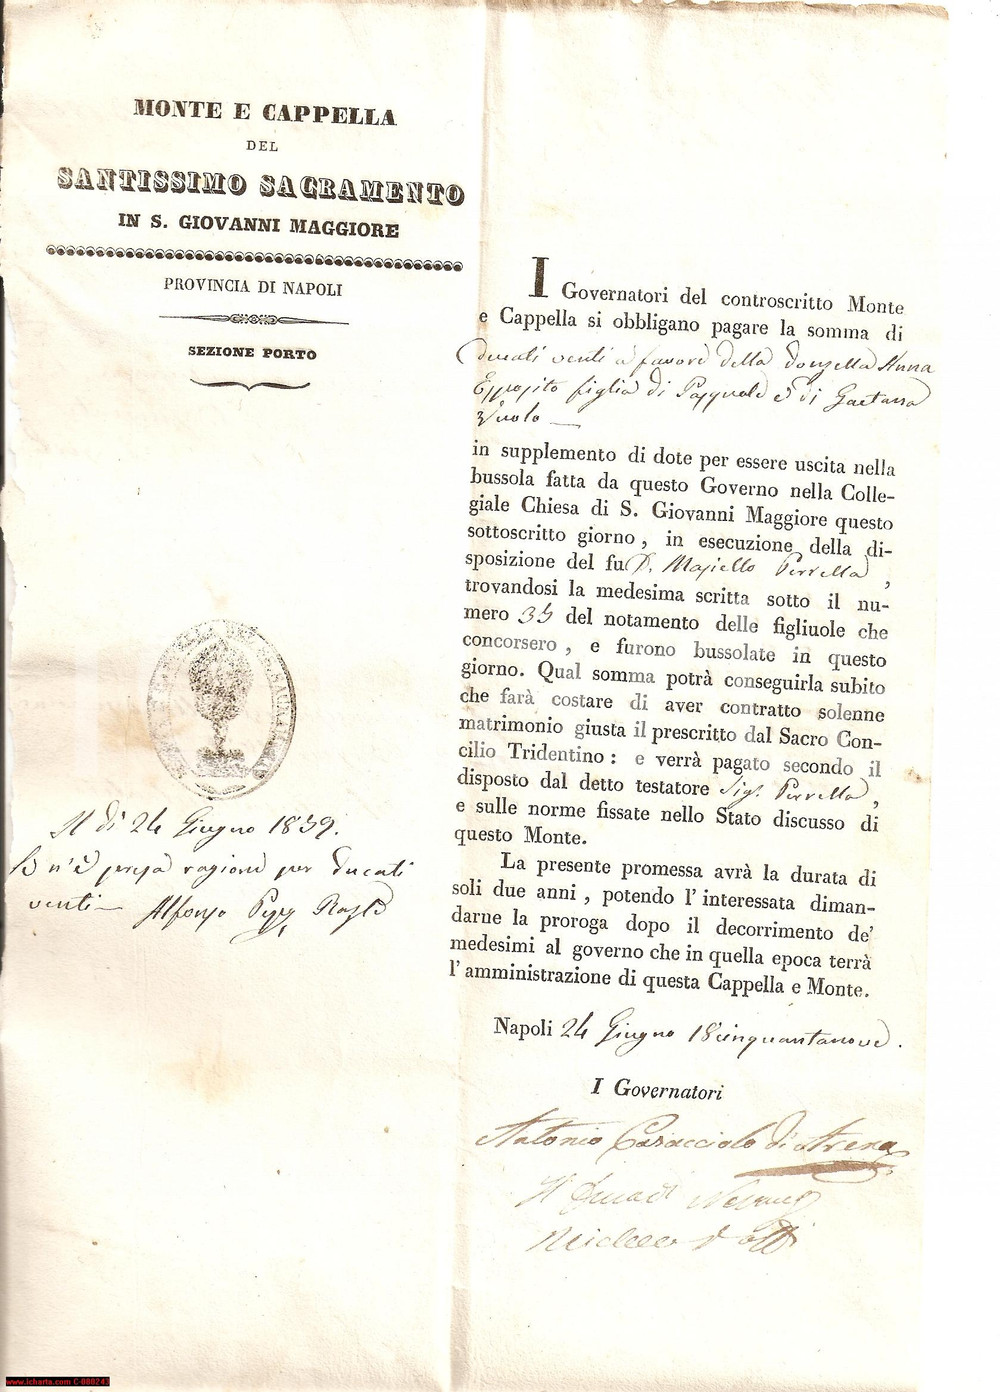 MONTE E CAPPELLA
DEL
SANTISSIMO SACRAMENTO
IN S. GIOVANNI MAGGIORE
PROVINCIA DI NAPOLI
SEZIONE PORTO
I Governatori del controscritto Monte
e Cappella si obbligano pagare la somma di
ducati venti a favore della donzella Anna
Esposito figlia di Pasquale e di Gaetana
in supplemento di dote per essere uscita nella
bussola fatta da questo Governo nella Colle-
giale Chiesa di S. Giovanni Maggiore questo
sottoscritto giorno, in esecuzione della di-
sposizione del fu D. Masiello Perrella,
trovandosi la medesima scritta sotto il nu-
mero 35 del notamento delle figliuole che
concorsero, e furono bussolate in questo
giorno. Qual somma potrà conseguirla subito
che farà costare di aver contratto solenne
matrimonio giusta il prescritto dal Sacro Con-
cilio Tridentino: e verrà pagato secondo il
disposto dal detto testatore Sig. Perrella,
e sulle norme fissate nello Stato discusso di
questo Monte.
La presente promessa avrà la durata di
soli due anni, potendo l'interessata diman-
darne la proroga dopo il decorrimento de'
medesimi al governo che in quella epoca terrà
l'amministrazione di questa Cappella e Monte.
Napoli 24 Giugno 18cinquantanove.
I Governatori
Antonio Caracciolo di Arena
A dì 24 Giugno 1859.
Se n'è presa ragione per ducati
venti— Alfonso
www.icharta.com C-088243